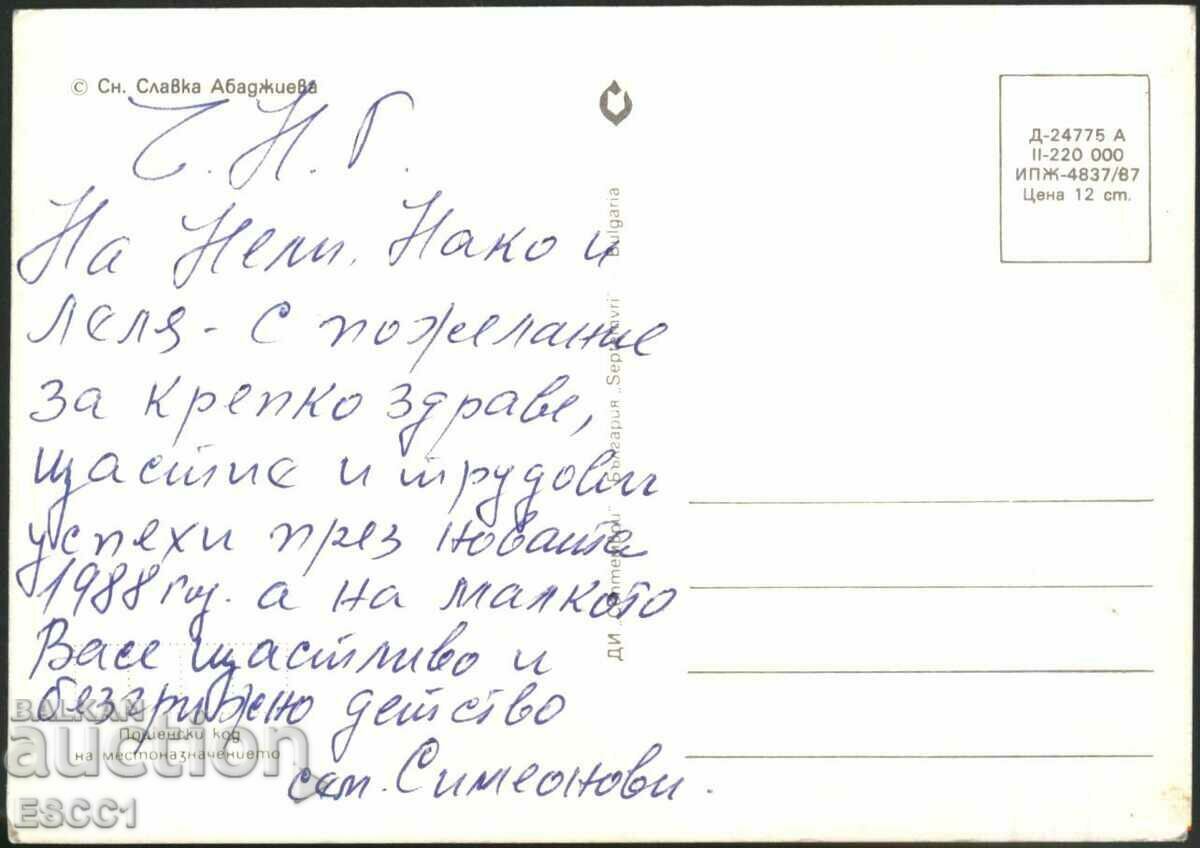 © Сн. Славка Абаджиева
Ч. Н. Г.
На Нели, Нако и
Леля - с пожелание
за крепко здраве,
щастие и трудови
успехи през новата
1988 год. а на малкото
Васе щастливо и
безгрижно детство
сем. Симеонови.
Пощенски код
на местоназначението
ДИ „Септември“ България „Septemvri“ Bulgaria
Д-24775 А
II-220 000
ИПЖ-4837/87
Цена 12 ст.
BALKAN
auction
ESCC1